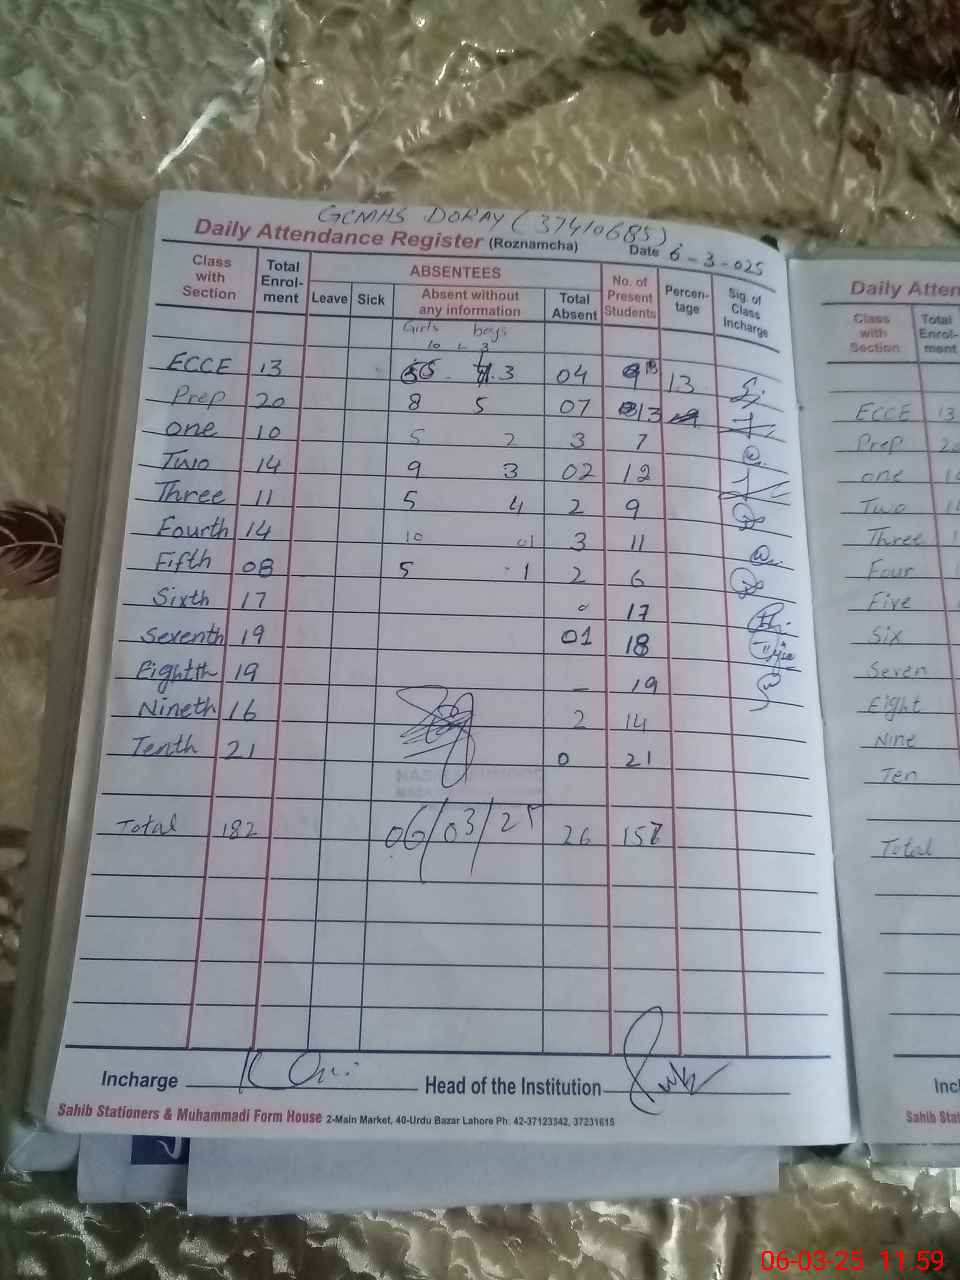 GCMHS DOKAY (37410685)
Daily Attendance Register (Roznamcha) Date 6-3-025
Class with Section Total Enrol-ment ABSENTEES No. of Present Students Percen-tage Sig. of Class Incharge
Leave Sick Absent without any information Total Absent
Girls boys
10 3
ECCE 13 3 04 9 13
Prep 20 8 5 07 13
one 10 5 2 3 7
Two 14 9 3 02 12
Three 11 5 4 2 9
Fourth 14 10 01 3 11
Fifth 08 5 1 2 6
Sixth 17 0 17
Seventh 19 01 18
Eighth 19 – 19
Nineth 16 2 14
Tenth 21 0 21
Total 182 06/03/25 26 157
Incharge Head of the Institution
Sahib Stationers & Muhammadi Form House 2-Main Market, 40-Urdu Bazar Lahore Ph: 42-37123342, 37231615
Daily Atten
Class with Section Total Enrol-ment
ECCE 13
Prep 20
one
Two
Three
Four
Five
Six
Seven
Eight
Nine
Ten
Total
Incl
Sahib Sta
06-03-25 11.59